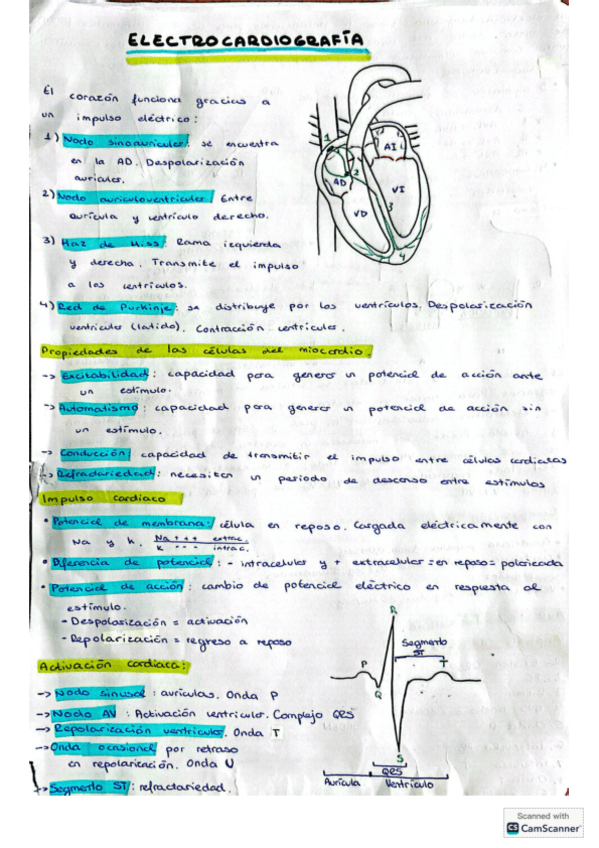 ELECTROCARDIOGRAFÍA
El corazón funciona gracias a
un impulso eléctrico:
1) Nodo sinoauricular: se encuentra
en la AD. Despolarización
auricular.
2) Nodo auriculoventricular: Entre
aurícula y ventrículo derecho.
3) Haz de Hiss: Rama izquierda
y derecha. Transmite el impulso
a los ventrículos.
1
AI
AD
2
VI
3
VD
4
4) Red de Purkinje: se distribuye por los ventrículos. Despolarización
ventricular (latido). Contracción ventricular.
Propiedades de las células del miocardio.
-> Excitabilidad: capacidad para generar un potencial de acción ante
un estímulo.
-> Automatismo: capacidad para generar un potencial de acción sin
un estímulo.
-> Conducción: capacidad de transmitir el impulso entre células cardiacas
-> Refractariedad: necesitan un periodo de descanso entre estímulos
Impulso cardiaco
• Potencial de membrana: célula en reposo. Cargada eléctricamente con
Na y K. Na +++ extrac.
K --- intrac.
• Diferencia de potencial: - intracelular y + extracelular = en reposo = polarizada
• Potencial de acción: cambio de potencial eléctrico en respuesta al
estímulo.
- Despolarización = activación
- Repolarización = regreso a reposo
Activación cardiaca:
-> Nodo sinusal: aurículas. Onda P
-> Nodo AV: Activación ventricular. Complejo QRS
-> Repolarización ventricular. Onda T
-> Onda ocasional por retraso
en repolarización. Onda U
-> Segmento ST: refractariedad.
R
Segmento
ST
P
T
Q
S
QRS
Aurícula
Ventrículo
Scanned with
CS CamScanner